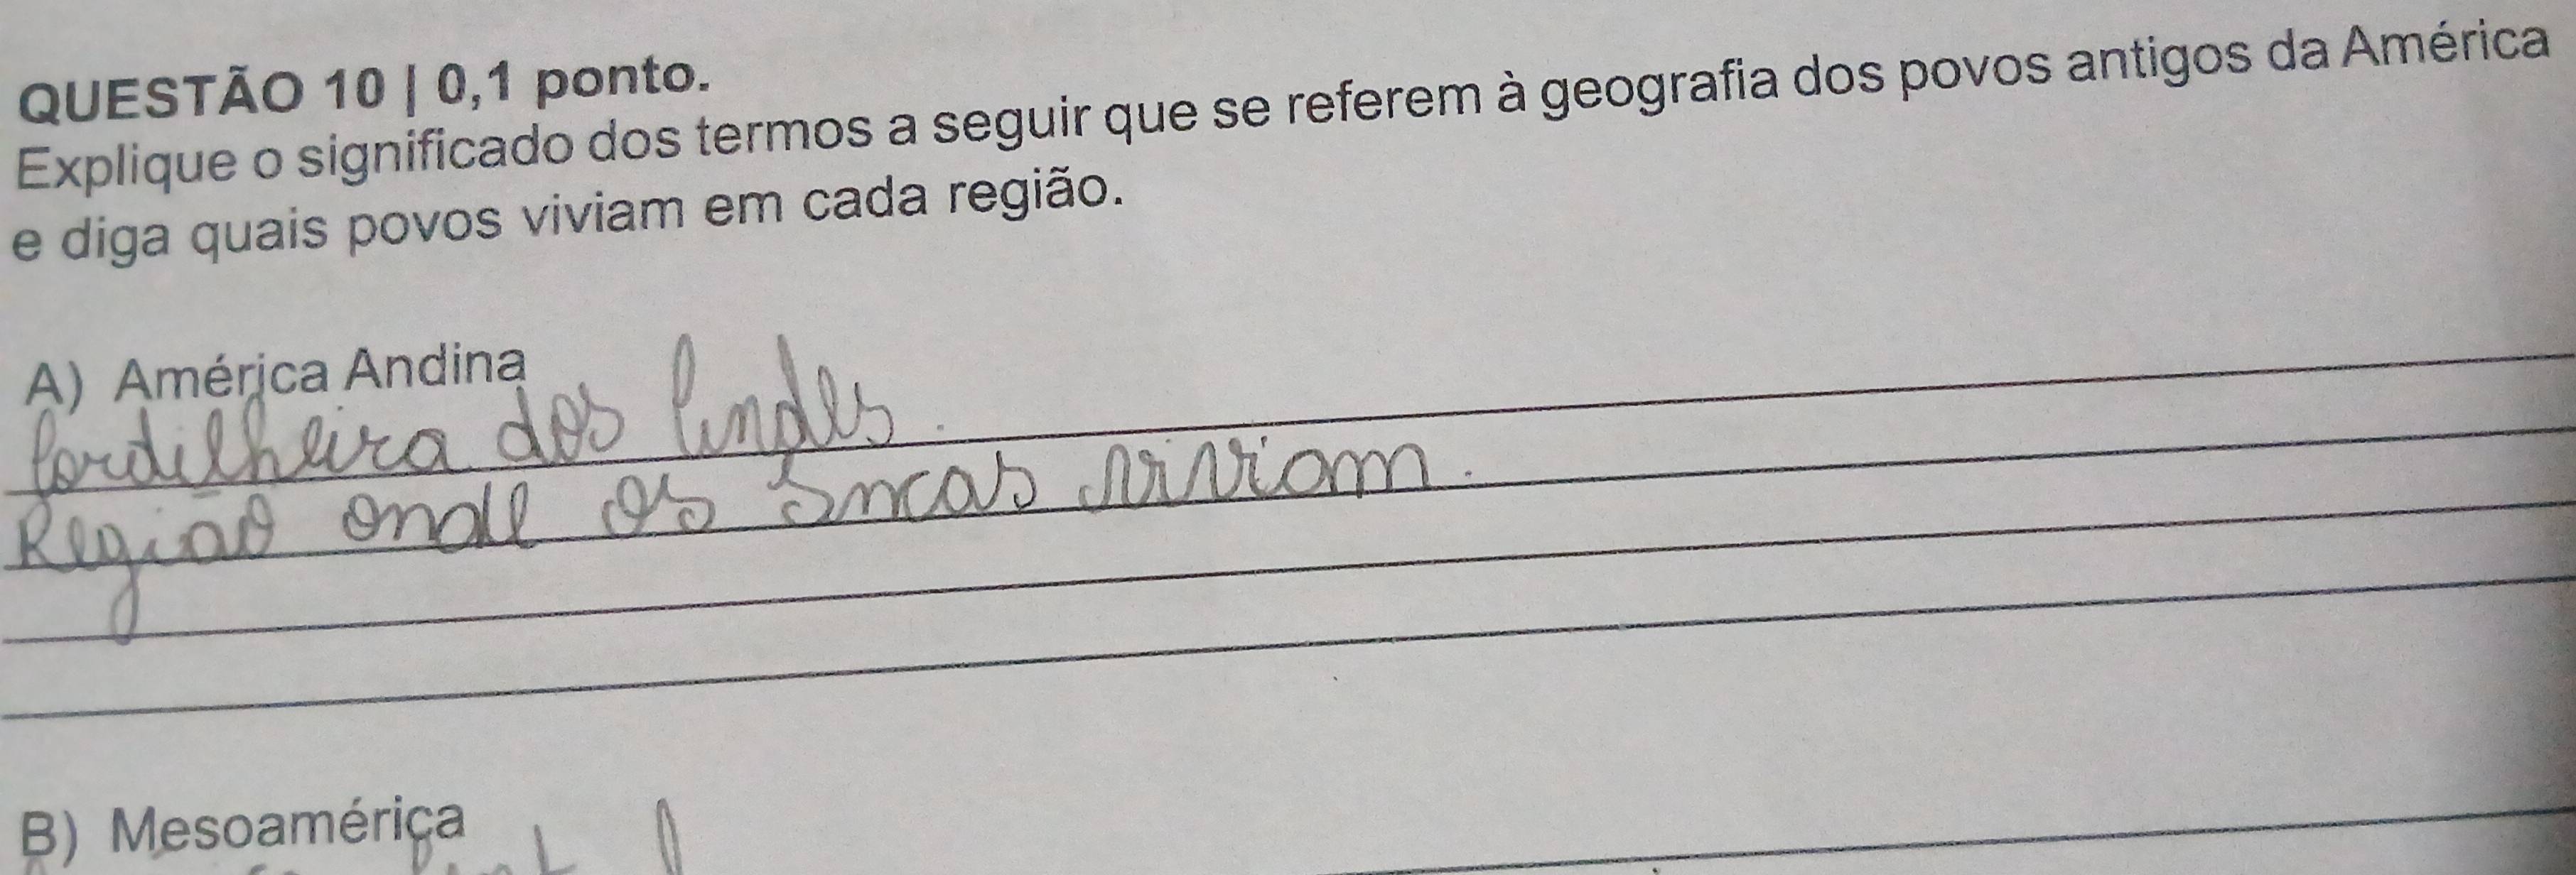 QUESTÃO 10 | 0,1 ponto.
Explique o significado dos termos a seguir que se referem à geografia dos povos antigos da América
e diga quais povos viviam em cada região.
A) América Andina
Cordilheira dos Andes.
Região onde os Incas viviam.
B) Mesoamérica